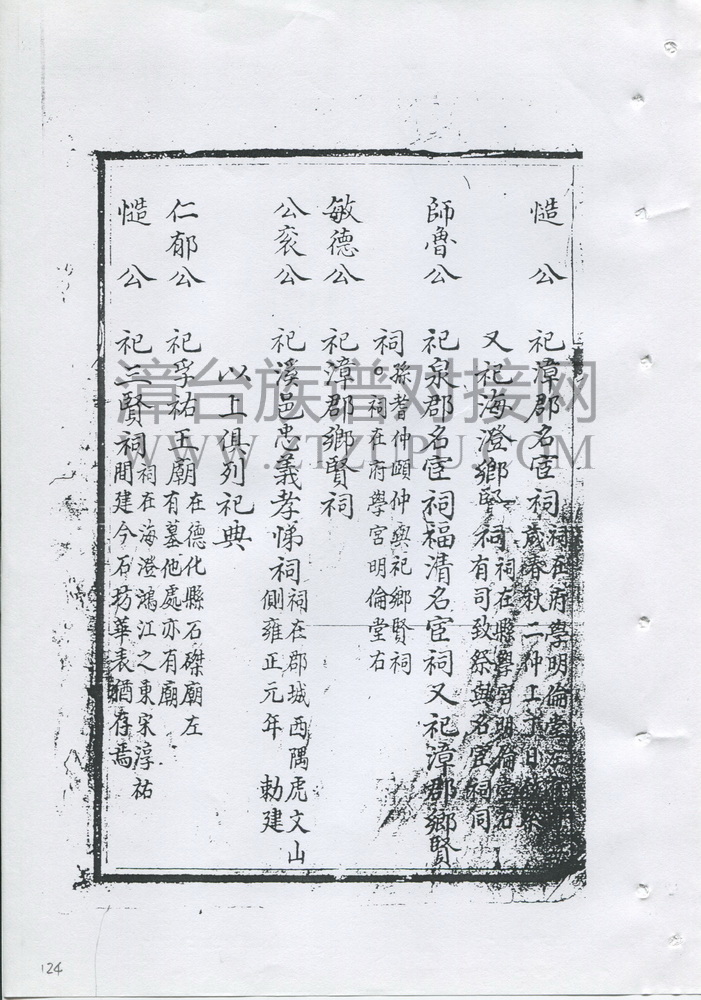 慥公 祀漳郡名宦祠 祠在府學明倫堂左
歲春秋二仲上丁日致祭
又祀海澄鄉賢祠 祠在縣學宮明倫堂右
有司致祭與名宦祠同
師魯公 祀泉郡名宦祠福清名宦祠又祀漳郡鄉賢
祠 孫耆仲頤仲與祀鄉賢祠
祠在府學宮明倫堂右
敏德公 祀漳郡鄉賢祠
公袞公 祀溪邑忠義孝悌祠 祠在郡城西隅虎文山
側雍正元年 勅建
以上俱列祀典
仁郁公 祀孚祐王廟 在德化縣石磔廟左
有墓他處亦有廟
慥公 祀三賢祠 祠在海澄鴻江之東宋淳祐
間建今石坊華表猶存焉
124
漳台族谱对接网
WWW.ZTZUPU.COM